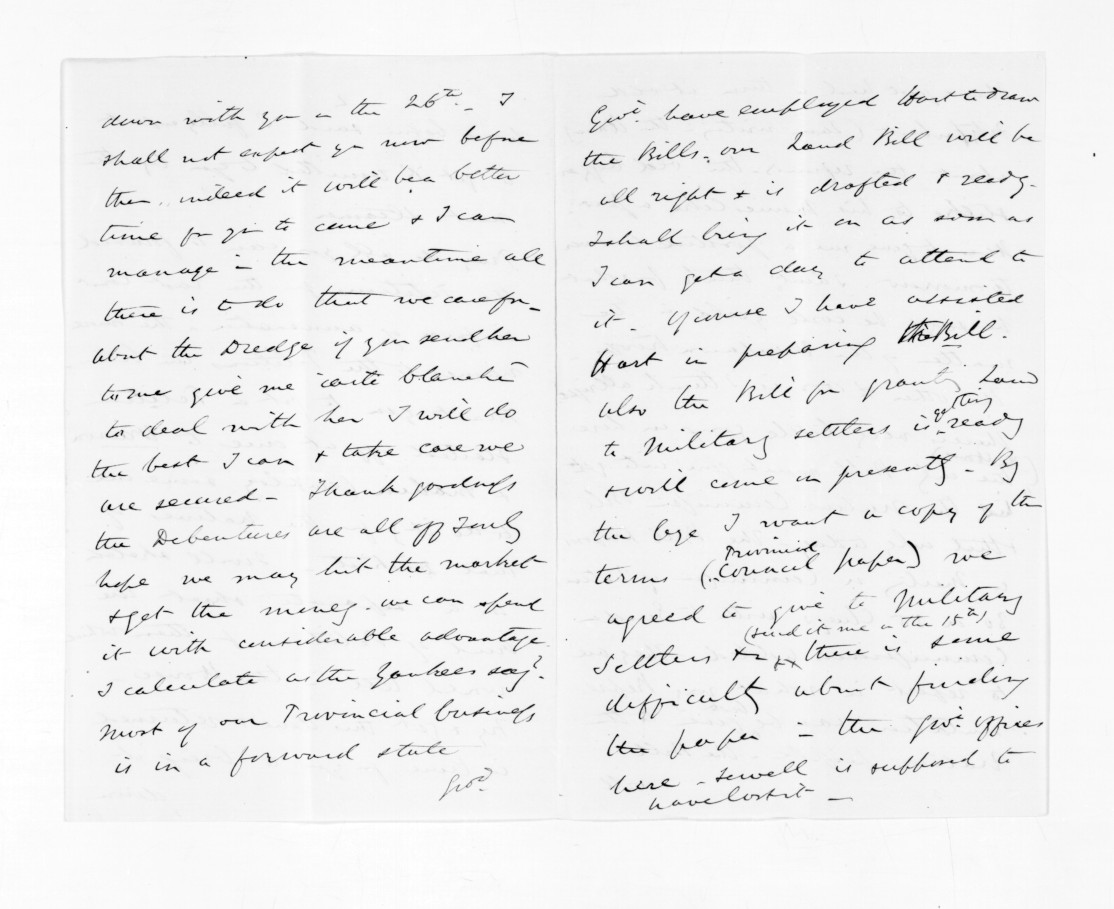 down with you on the 26th. I
shall not expect you now before
then, indeed it will be a better
time for you to come & I can
manage in the meantime all
there is to do that we care for -
about the Dredge if you send her
to me give me "carte blanche"
to deal with her I will do
the best I can & take care we
are secured - Thank goodness
the Debentures are all off I only
hope we may hit the market
& get the money. we can spend
it with considerable advantage
I calculate as the Yankees say.
Most of our Provincial business
is in a forward state
Govt
Govt have employed Hart to draw
the Bills, our Land Bill will be
all right & is drafted & ready.
I shall bring it on as soon as
I can get a day to attend to
it. Of course I have assisted
Hart in preparing the Bill.
also the Bill for granting Land
to Military settlers is getting ready
& will come on presently - By
the bye I want a copy of the
terms (Provincial Council paper) we
agreed to give to Military
(send it me on the 15th)
Settlers xx there is some
difficulty about finding
the paper in the Govt offices
here - Sewell is supposed to
have lost it -